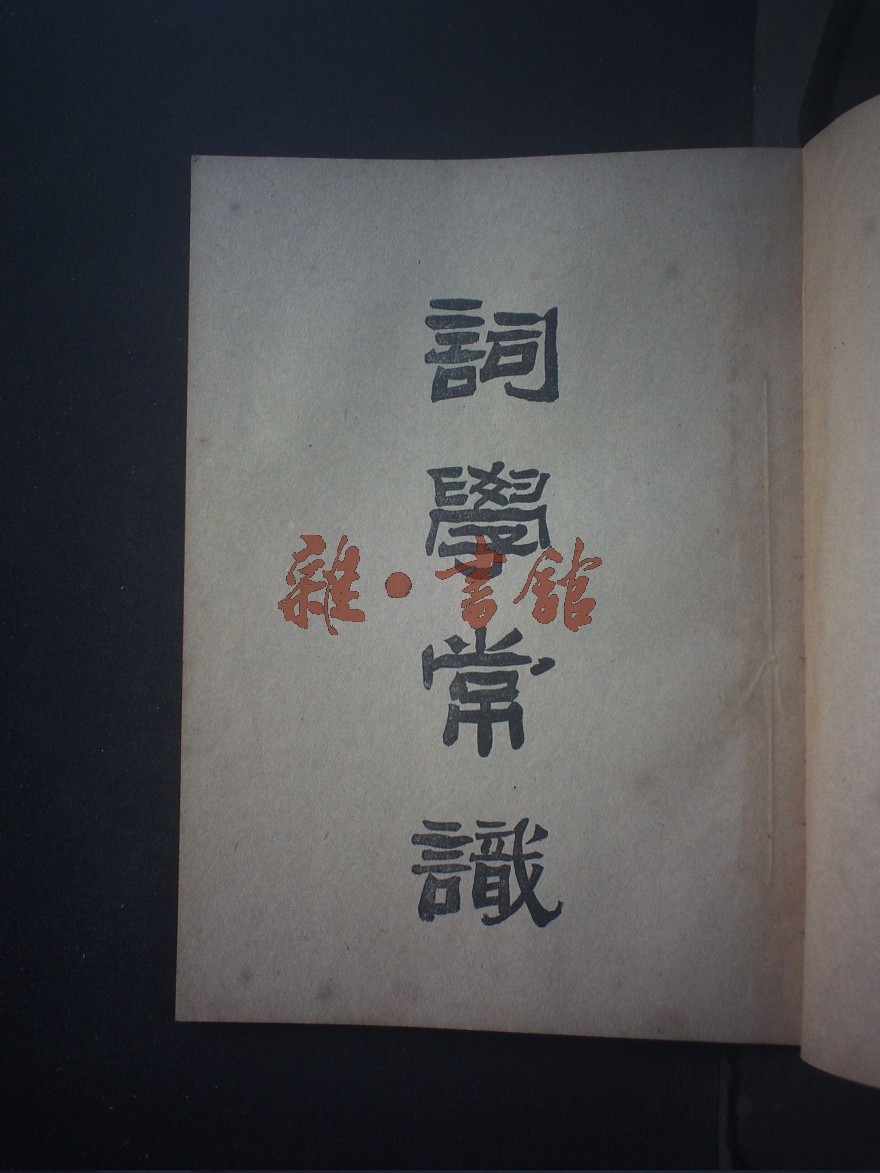 詞學常識
雜·書館